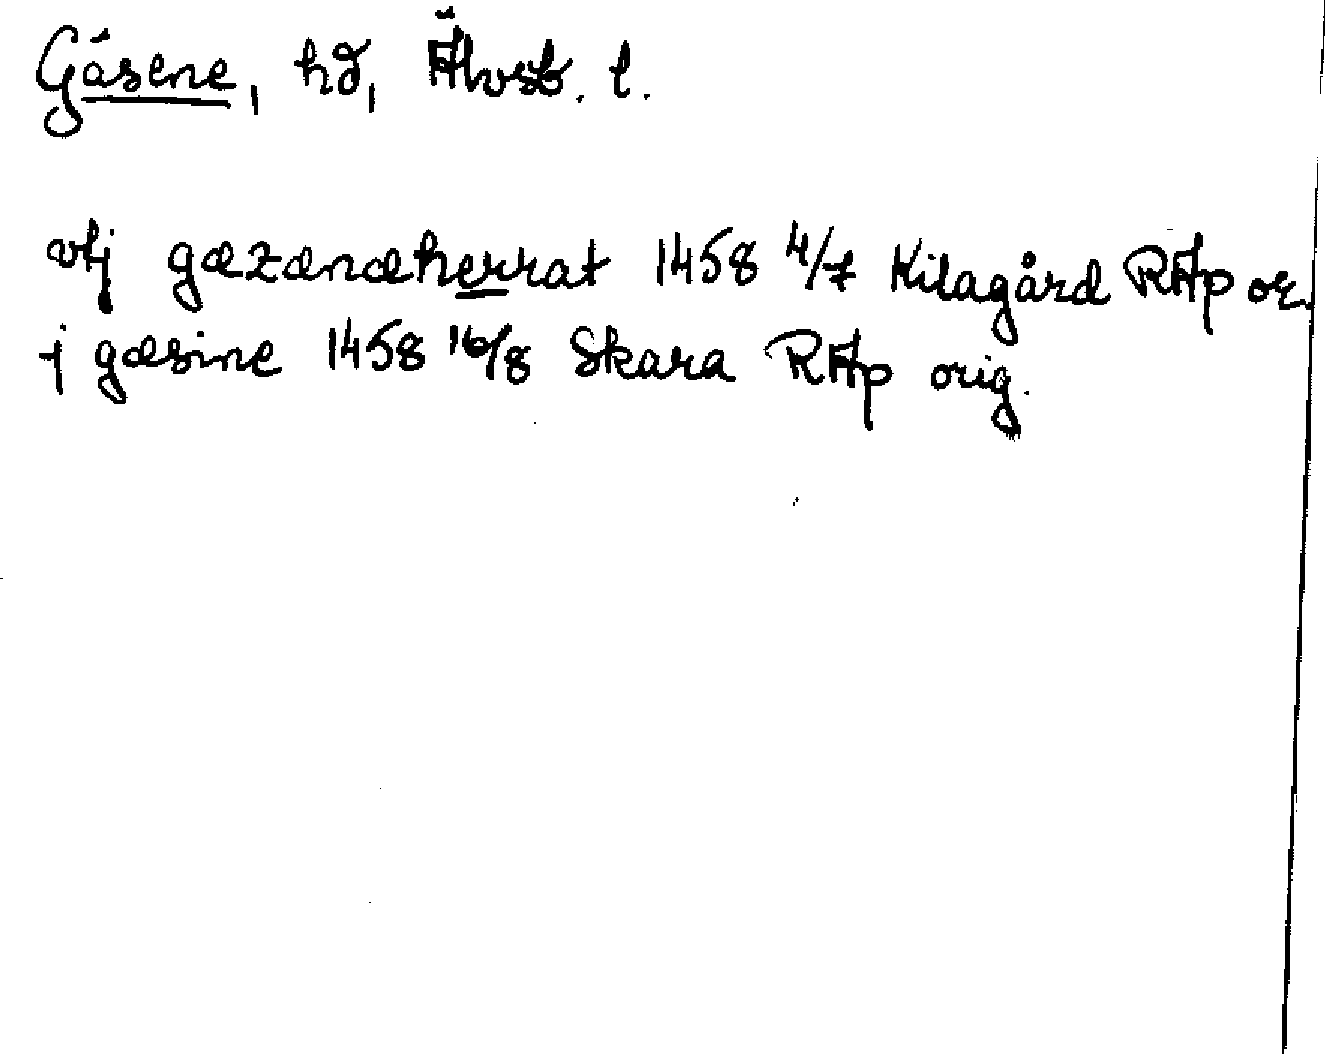 Gäsene, hd, Älvsb. l.
vtj gæzænæherrat 1458 4/7 Kilagård RAp or.
j gæsine 1458 16/8 Skara RAp orig.